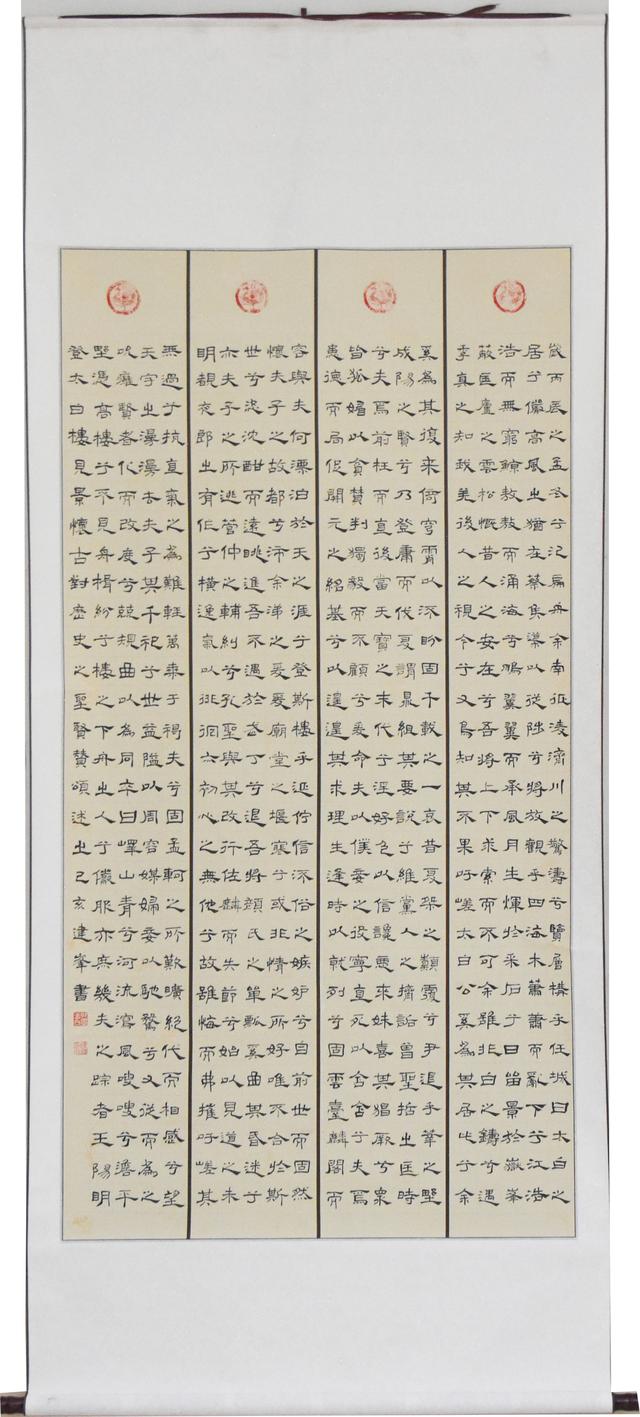 歲丙辰之孟冬兮汎扁舟余南征凌濟川之驚濤兮覽層構乎任城曰太白之
居兮儼高風之猶在蔡侯導以從陟兮將放觀乎四海木蕭蕭而亂下兮江浩
浩而無窮鯨敖敖而涌海兮鵬翼翼而承風月生輝於采石兮日留景於嶽峯
蔽匡廬之雲松慨昔人之安在兮吾將上下求索而不可余雖非白之儔兮遇
季真之知我羌後人之視今兮又烏知其不果吁嗟太白公奚為其居此兮余
奚為其復來倚穹霄以流盼固千載之一哀昔夏桀之顛覆兮尹退乎莘之埜
成湯之賢兮乃登庸而伐夏謂鼎俎其要說兮維黨人之擠詬曾聖哲之匡時
兮夫焉前枉而直後當天寶之末代兮淫好色以信讒惡來妹喜其猖厥兮眾
皆狐媚以貪婪判獨毅而不顧兮爰命夫以僕妾之役寧直死以兮夫焉
患德而局促開元之紹基兮以遑遑其求理生逢時以就列兮固雲臺麟閣而
容與夫何漂泊於天之涯兮登斯樓乎延佇信流俗之嫉妒兮自前世而固然
懷夫子之故都兮沛余涕之湲湲廟堂之偃蹇兮或非情之所好唯不合於斯
世兮恣沈酣而遠眺進吾不遇於武丁兮退吾將顏氏之簞瓢奚曲其昏迷兮
亦夫子之所逃管仲之輔糾兮孔聖與其改行佐麟而失節兮始以見道之未
明覩夜郎之有作兮橫逸氣以徘徊亦初心之無他兮故雖悔而弗摧吁嗟其
無過兮抗直氣之為難輕萬乘于褐夫兮固孟軻之所歎曠絕代而相感兮望
天宇之漫漫去夫子其千祀兮世益隘以周容媒婦妾以馳騖兮又從而為之
吮癰賢者化而改度兮競規曲以為同卒曰嶧山青兮河流瀉風颼颼兮澹平
埜憑高樓兮不見舟楫紛兮樓之下舟之人兮儼服亦庶幾夫之踪者王陽明
登太白樓見景懷古對歷史之聖賢贊頌述之己亥建峯書